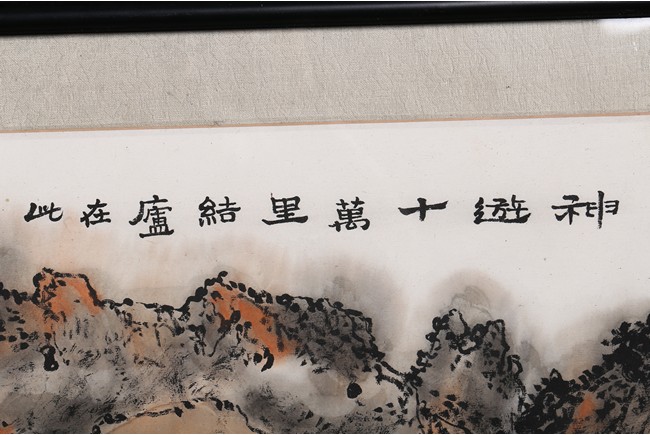 神遊十萬里結廬在此